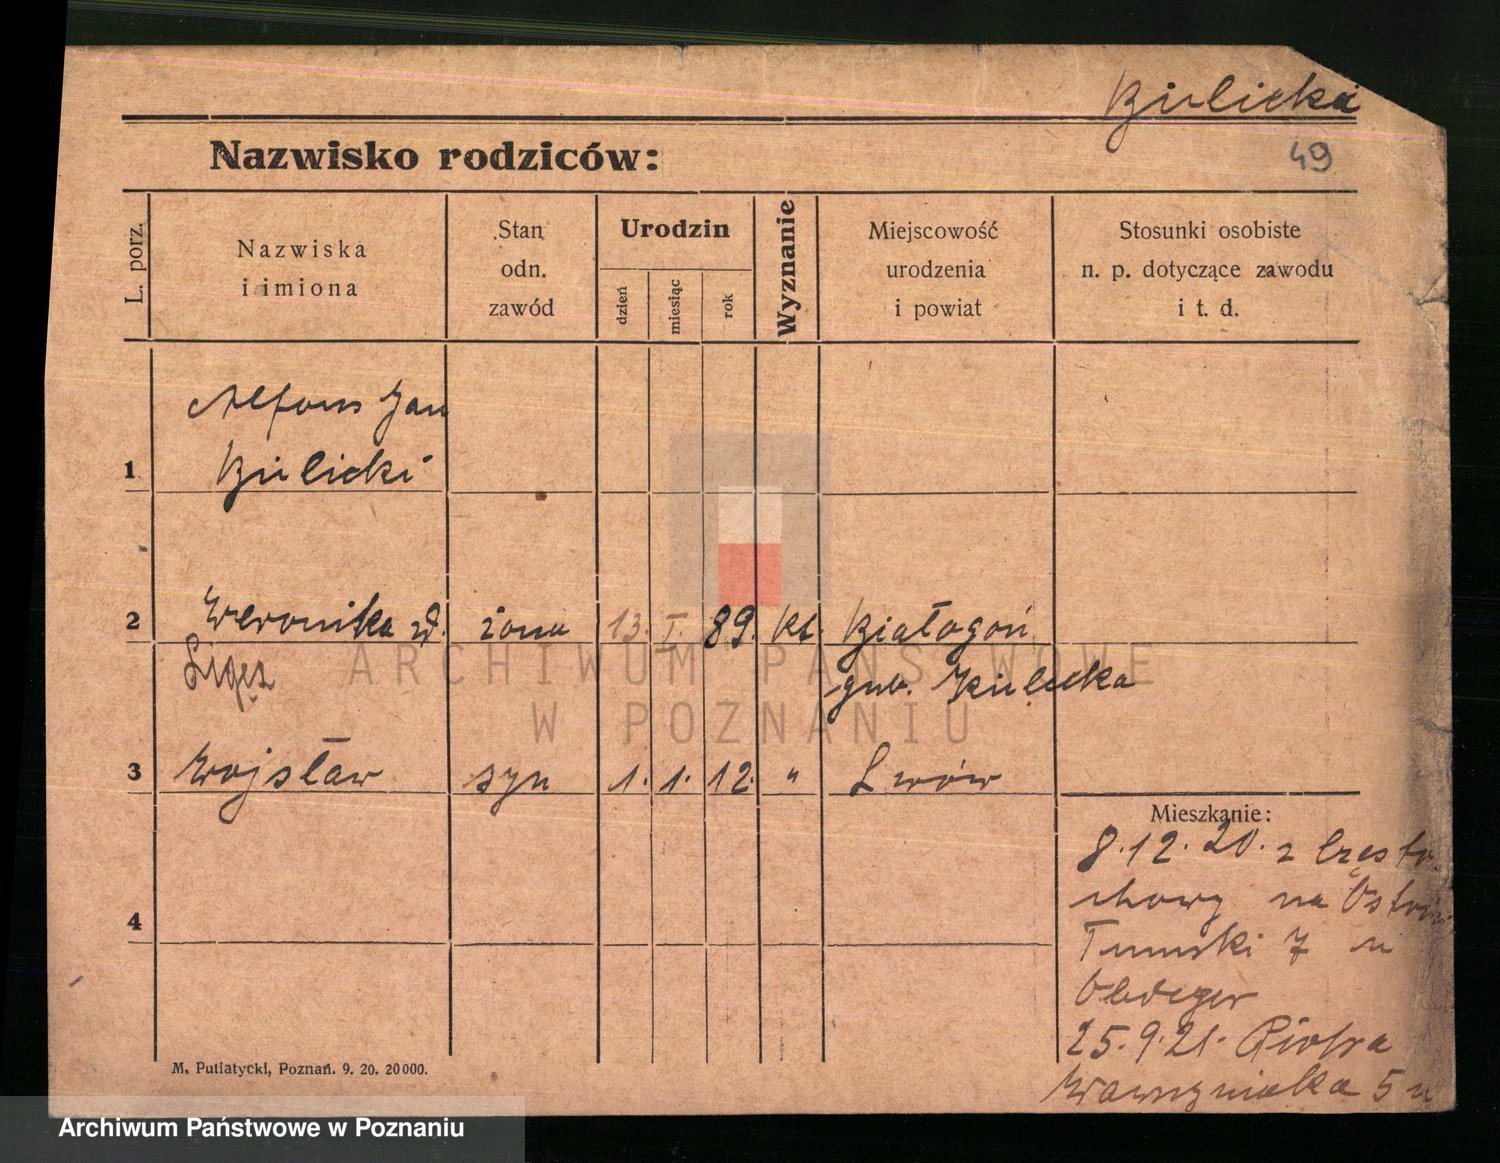 Bielicki
49
Nazwisko rodziców:
L. porz.
Nazwiska
i imiona
Stan
odn.
zawód
Urodzin
dzień
miesiąc
rok
Wyznanie
Miejscowość
urodzenia
i powiat
Stosunki osobiste
n. p. dotyczące zawodu
i t. d.
1
Alfons Jan
Bielicki
2
Weronika zd. żona 13. I. 89. kt. Białogoń
Ligęz gub. Kielecka
3
Wojsław syn 1. 1. 12. " Lwów
4
Mieszkanie:
8.12.20. z Często-
chowy na Ostrów
Tumski 7 u
25.9.21. Piotra
Wawrzyniaka 5 u
M. Putiatycki, Poznań. 9. 20. 20000.
ARCHIWUM PAŃSTWOWE
W POZNANIU
Archiwum Państwowe w Poznaniu